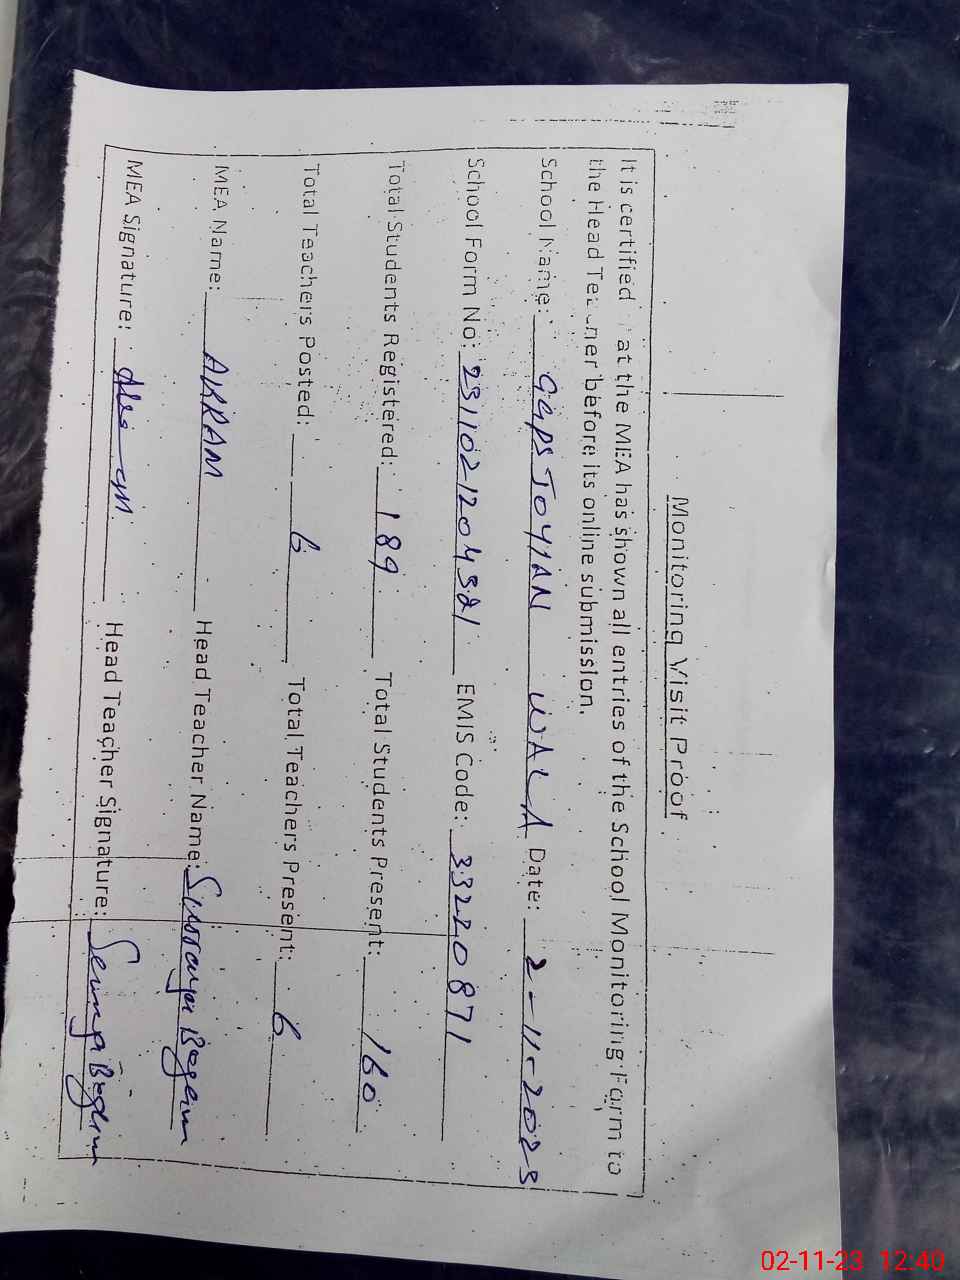 Monitoring Visit Proof
It is certified at the MEA has shown all entries of the School Monitoring Form to
the Head Teacher before its online submission.
School Name: GGPS JOYIAN WALA Date: 2-11-2023
School Form No: 2311021204321 EMIS Code: 33220871
Total Students Registered: 189 Total Students Present: 160
Total Teachers Posted: 6 Total Teachers Present: 6
MEA Name: AKRAM Head Teacher Name: Begum
MEA Signature: Head Teacher Signature: Begum
02-11-23 12:40